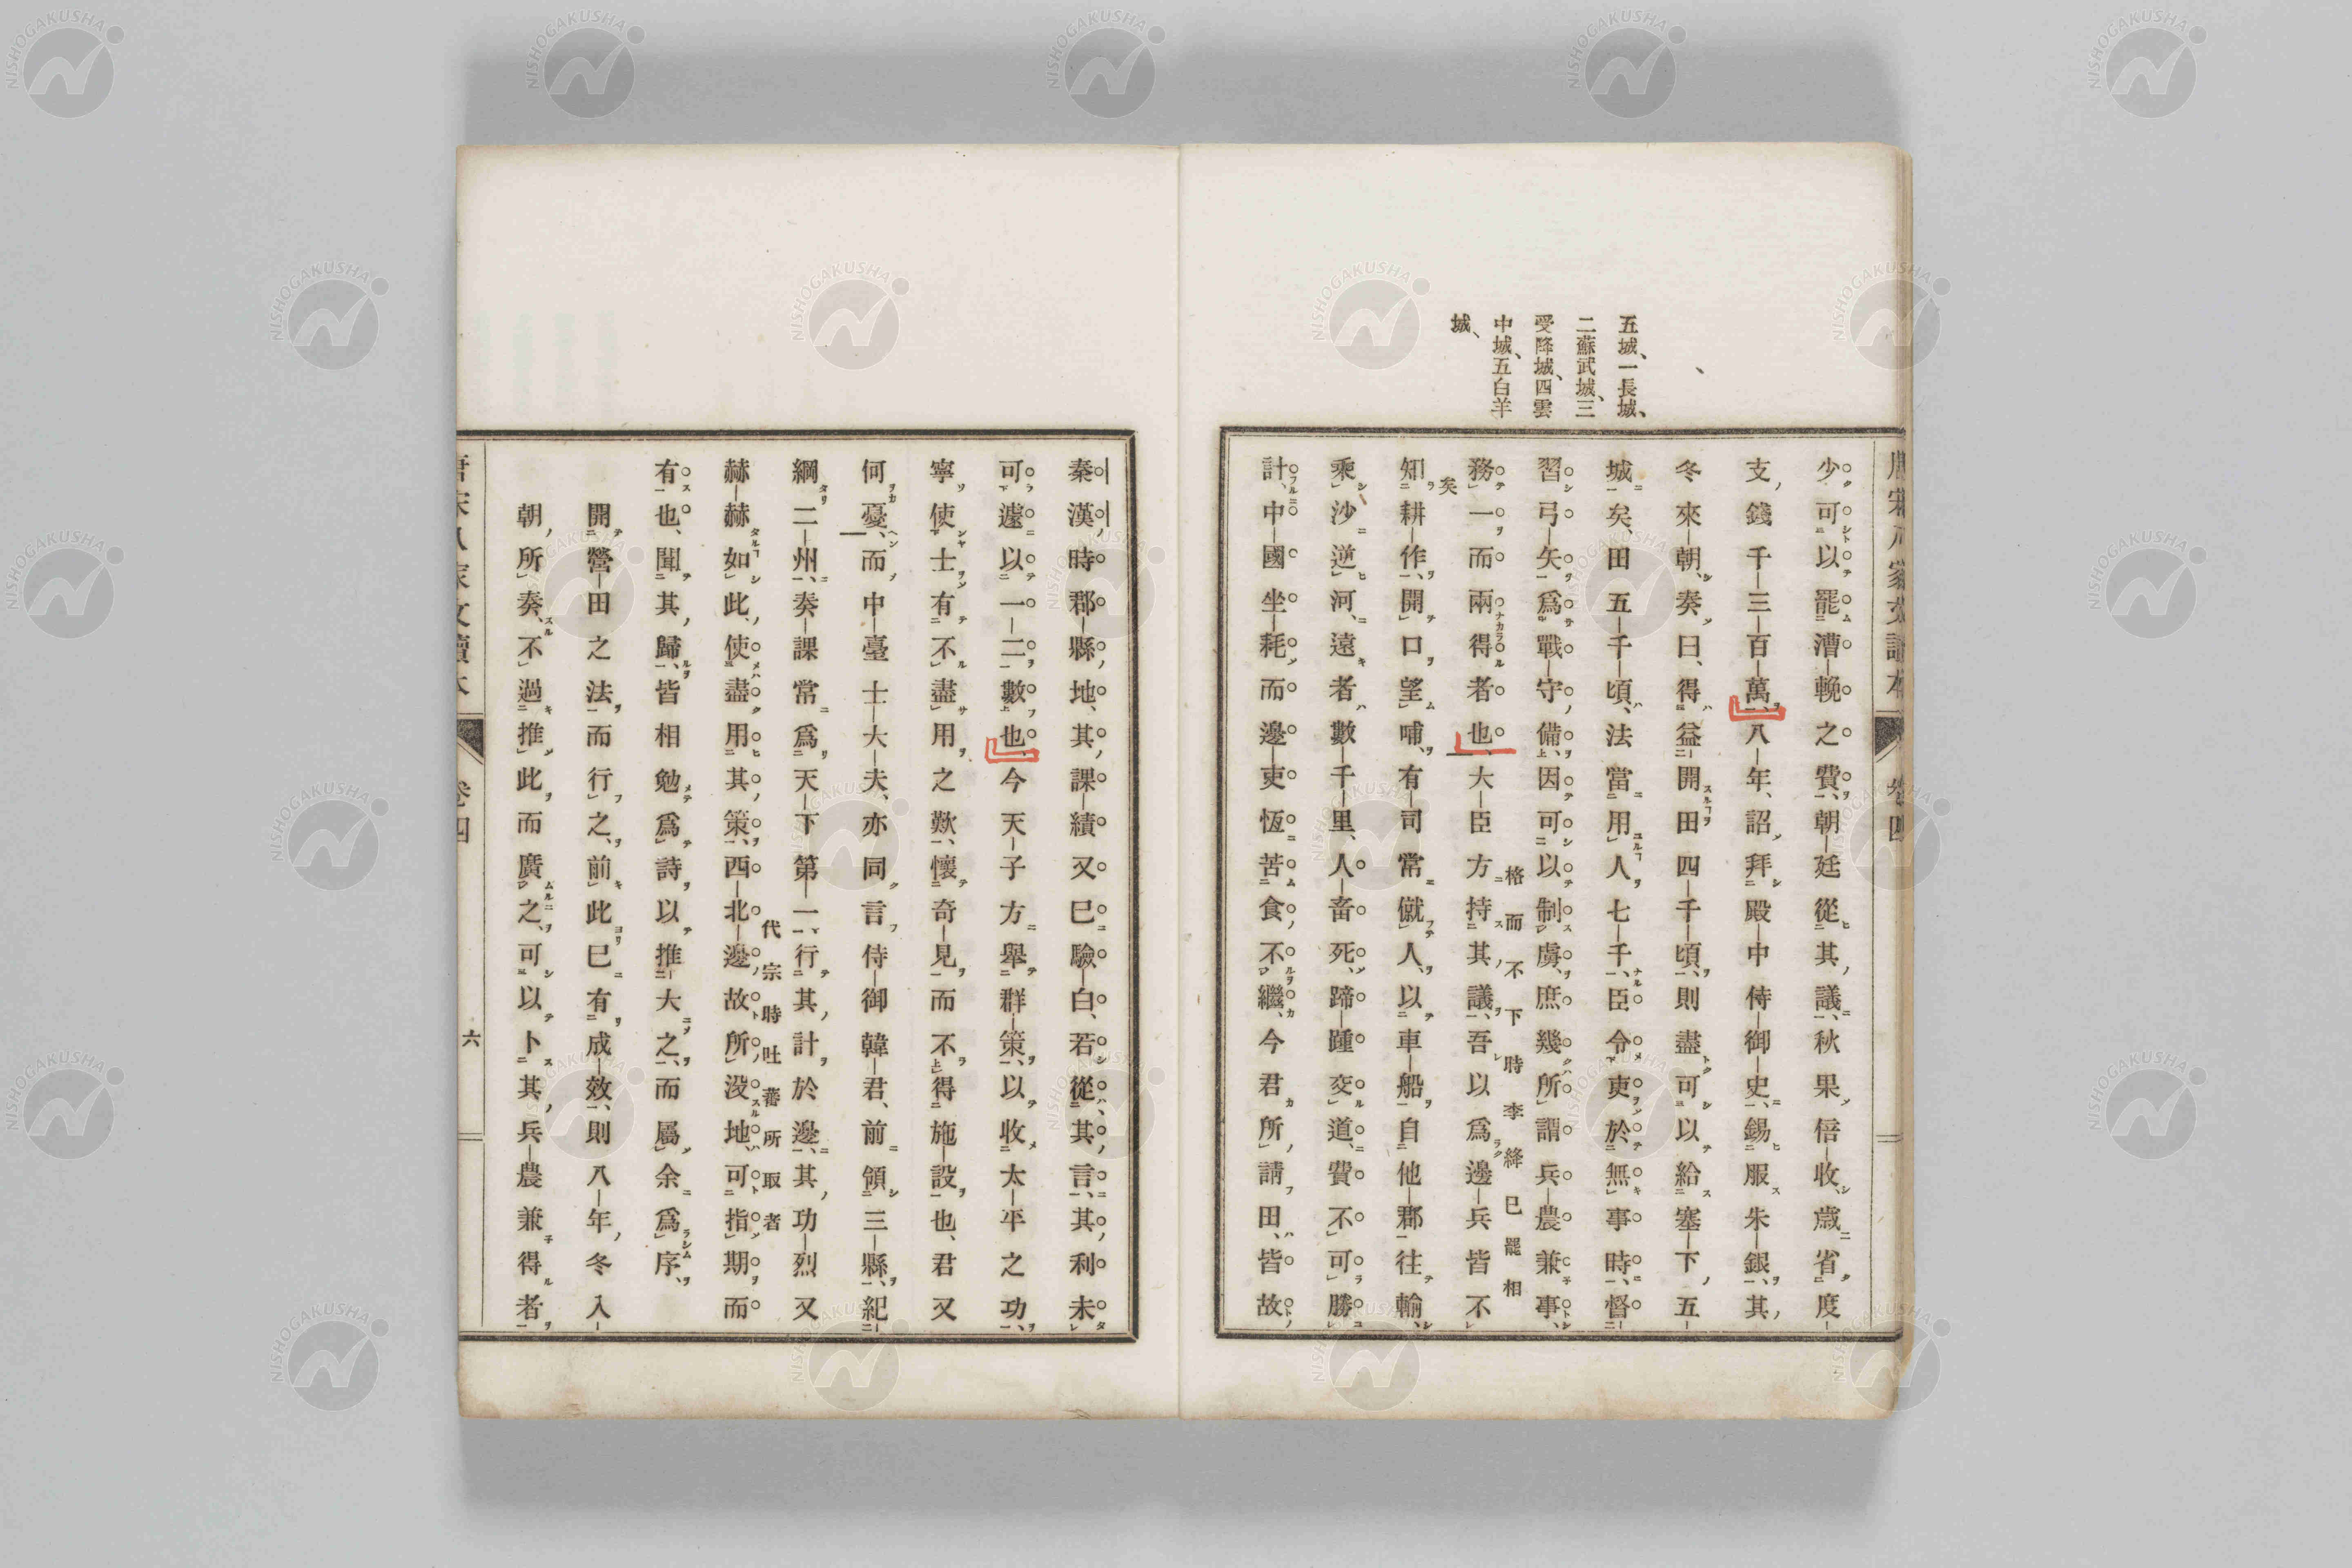 五城、一長城、
二蘇武城、三
受降城、四雲
中城、五白羊
城、
少可以罷漕輓之費、朝廷從其議、秋果倍收、歲省度
支錢千三百萬、八年、詔拜殿中侍御史、錫服朱銀、其
冬來朝、奏曰、得益開田四千頃、則盡可以給塞下五
城矣、田五千頃、法當用人七千、臣令吏於無事時、督
習弓矢、爲戰守備、因可以制虜、庶幾所謂兵農兼事、
務一而兩得者也、大臣方持其議、吾以爲邊兵皆不
格而不下時李絳已罷相
矣
知耕作、開口望哺、有司常僦人、以車船自他郡往輸、
乘沙逆河、遠者數千里、人畜死、蹄踵交道、費不可勝
計、中國坐耗、而邊吏恆苦食不繼、今君所請田、皆故
秦漢時郡縣地、其課績又巳驗白、若從其言、其利未
可遽以一二數也、今天子方舉群策、以收太平之功、
寧使士有不盡用之歎、懷奇見而不得施設也、君又
何憂、而中臺士大夫、亦同言侍御韓君、前領三縣、紀
綱二州、奏課常爲天下第一、行其計於邊、其功烈又
赫赫如此、使盡用其策、西北邊故所沒地、可指期而
代宗時吐蕃所取者
有也、聞其歸、皆相勉爲詩以推大之、而屬余爲序、
開營田之法、而行之、前此巳有成效、則八年冬入
朝、所奏、不過推此而廣之、可以卜其兵農兼得者
卷四
六